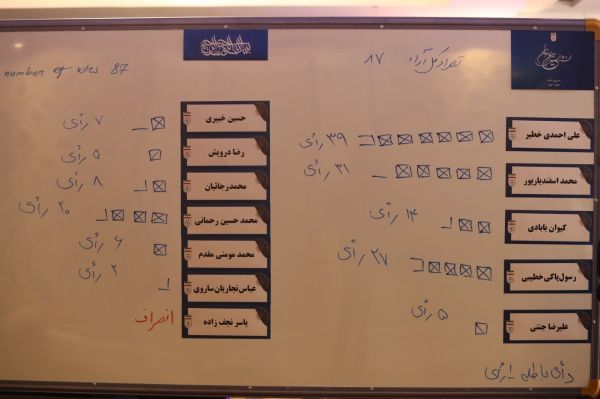 تعداد کل آراء ۸۷
number of votes 87
علی احمدی خطیر
۳۹ رأی
محمد اسفندیارپور
۳۱ رأی
کیوان بابادی
۱۴ رأی
رسول پاکی خطیبی
۲۷ رأی
علیرضا جنتی
۵ رأی
حسین خبیری
۷ رأی
رضا درویش
۵ رأی
محمد رجائیان
۸ رأی
محمد حسین رحمانی
۲۰ رأی
محمد مومنی مقدم
۶ رأی
عباس نجاریان ساروی
۲ رأی
یاسر نجف زاده
انصراف
رأی باطله ۱ رأی